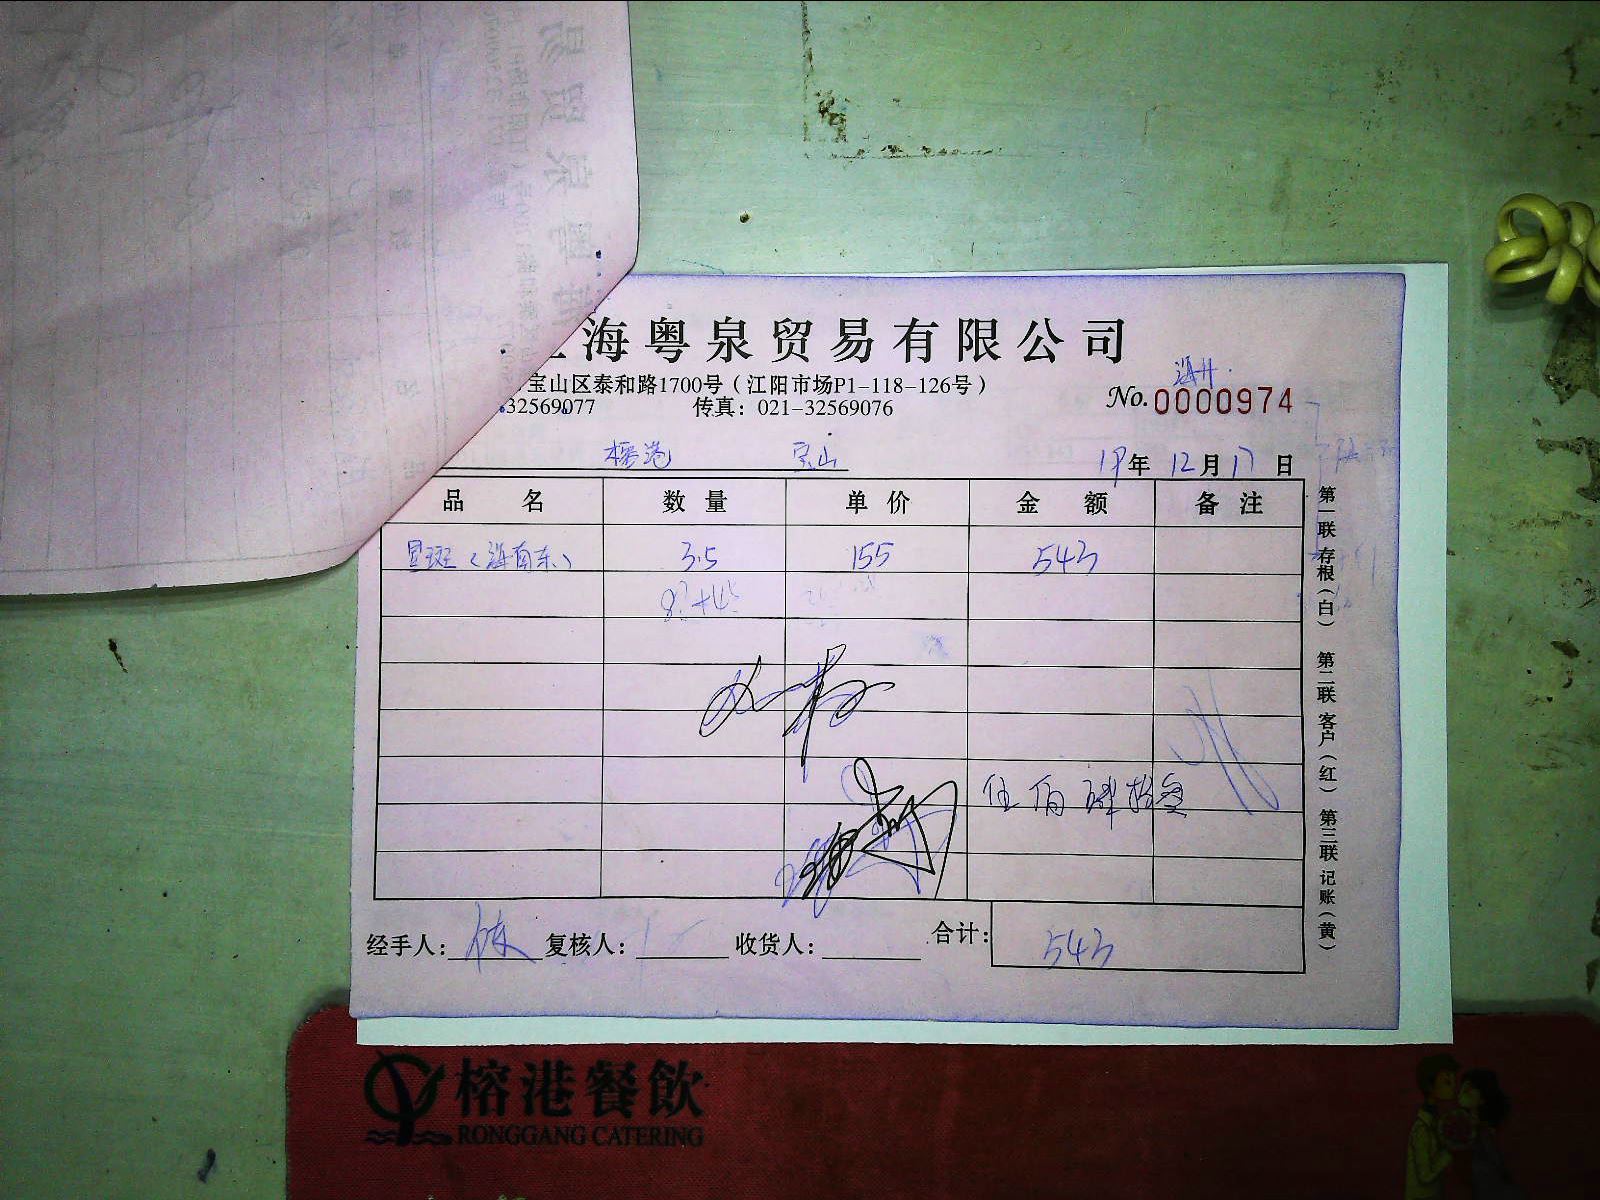 海粤泉贸易有限公司
宝山区泰和路1700号（江阳市场P1-118-126号）
32569077 传真：021-32569076
No.0000974
榕港 宝山 19年12月17日
品名 数量 单价 金额 备注
星斑（海南东） 3.5 155 543
伍佰肆拾叁
经手人： 复核人： 收货人： 合计： 543
第一联 存根（白） 第二联 客户（红） 第三联 记账（黄）
榕港餐飲
RONGGANG CATERING